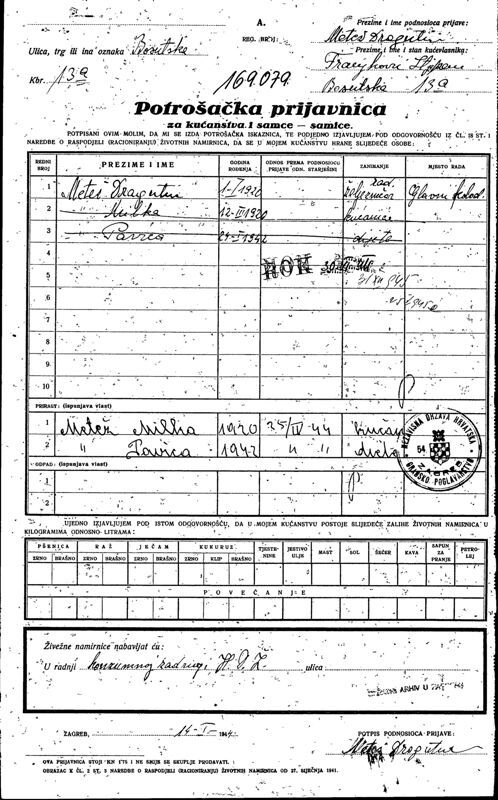 A.
Prezime i ime podnosioca prijave:
REG. BROJ
Meteš Dragutin
Ulica, trg ili ina oznaka Bosutska
Prezime i ime i stan kućevlasnika:
Kbr. 13a
Bosutska 13a
169.079.
Potrošačka prijavnica
za kućanstva i samce — samice.
POTPISANI OVIM MOLIM, DA MI SE IZDA POTROŠAČKA ISKAZNICA, TE PODJEDNO IZJAVLJUJEM POD ODGOVORNOŠĆU IZ ČL. 18 ST. 1
NAREDBE O RASPODJELI (RACIONIRANJU) ŽIVOTNIH NAMIRNICA, DA SE U MOJEM KUĆANSTVU HRANE SLIJEDEĆE OSOBE:
REDNI BROJ PREZIME I IME GODINA ROĐENJA ODNOS PREMA PODNOSIOCU PRIJAVE ODN. STARJEŠINI ZANIMANJE MJESTO RADA
1 Meteš Dragutin 1-I-1920 rad. Glavni kolod.
2 " Milka 12-III-1920 kućanica
3 " Pavica 24-I-1942 dijete
4
5 ROK
6
7
8
9
10
PRIRAST: (ispunjava vlast)
1 Metež Milka 1920 25/IV 44
2 " Pavica 1942 " "
ODPAD: (ispunjava vlast)
1
2
NEZAVISNA DRŽAVA HRVATSKA
GRADSKO POGLAVARSTVO
ZAGREB
54
UJEDNO IZJAVLJUJEM POD ISTOM ODGOVORNOŠĆU, DA U MOJEM KUĆANSTVU POSTOJE SLIJEDEĆE ZALIHE ŽIVOTNIH NAMIRNICA U
KILOGRAMIMA ODNOSNO LITRAMA:
PŠENICA RAŽ JEČAM KUKURUZ TJESTENINE JESTIVO ULJE MAST SOL ŠEĆER KAVA SAPUN ZA PRANJE PETROLEJ
ZRNO BRAŠNO ZRNO BRAŠNO ZRNO BRAŠNO ZRNO KLIP BRAŠNO
POVEĆANJE
Živežne namirnice nabavljat ću
U radnji konzumnog zadrugi H.D.Ž. ulica
ZAGREB, 14-I- 1944
POTPIS PODNOSIOCA PRIJAVE:
Meteš Dragutin
OVA PRIJAVNICA STOJI KN 1'75 I NE SMIJE SE SKUPLJE PRODAVATI.
OBRAZAC K ČL. 2 ST. 3 NAREDBE O RASPODJELI (RACIONIRANJU) ŽIVOTNIH NAMIRNICA OD 27. SIJEČNJA 1941.